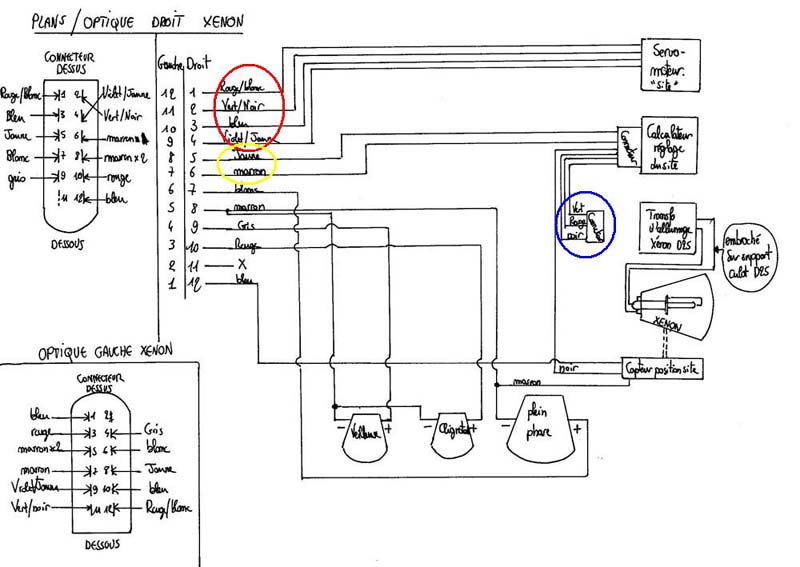 PLANS/OPTIQUE DROIT XENON
CONNECTEUR
DESSUS
Rouge/blanc 1 2 Violet/Jaune
Bleu 3 4 Vert/Noir
Jaune 5 6 marron
Blanc 7 8 marron x 2
gris 9 10 rouge
11 12 bleu
DESSOUS
Gauche Droit
12 1 Rouge/blanc
11 2 Vert/Noir
10 3 bleu
9 4 Violet/Jaune
8 5 Jaune
7 6 marron
6 7 blanc
5 8 marron
4 9 Gris
3 10 Rouge
2 11 X
1 12 bleu
Servo-
moteur
"site"
Connecteur
Calculateur
réglage
du site
Vert
Rouge
noir
Connecteur
Transfo
d'allumage
Xenon D2S
embroché
sur support
culot D2S
XENON
noir
Capteur position site
marron
- Veilleuse +
- Clignotant +
- plein
phare +
OPTIQUE GAUCHE XENON
CONNECTEUR
DESSUS
bleu 1 2
rouge 3 4 Gris
marron x 2 5 6 blanc
marron 7 8 Jaune
Violet/Jaune 9 10 bleu
Vert/noir 11 12 Rouge/blanc
DESSOUS